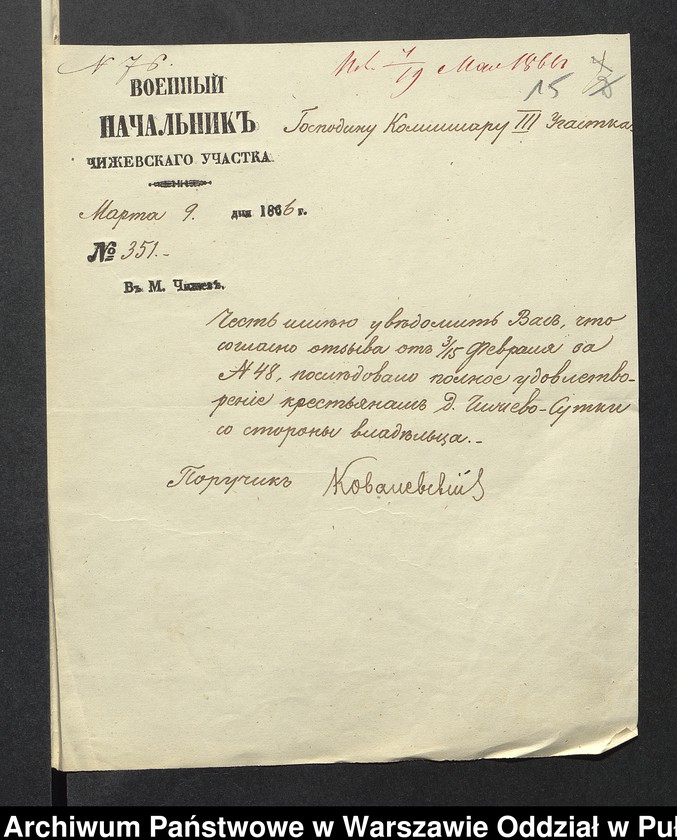 N 76.
7/19 Мая 1866
15
ВОЕННЫЙ
НАЧАЛЬНИКЪ
ЧИЖЕВСКАГО УЧАСТКА
Господину Коммисару III Участка.
Марта 9. дня 1866 г.
№ 351.-
Въ М. Чижевѣ.
Честь имѣю увѣдомить Васъ, что
согласно отзыва отъ 3/15 Февраля за
N 48, послѣдовало полное удовлетво-
реніе крестьянамъ Д. Чижево-Сутки
со стороны владѣльца.-
Поручикъ Ковалевскій
Archiwum Państwowe w Warszawie Oddział w Puł